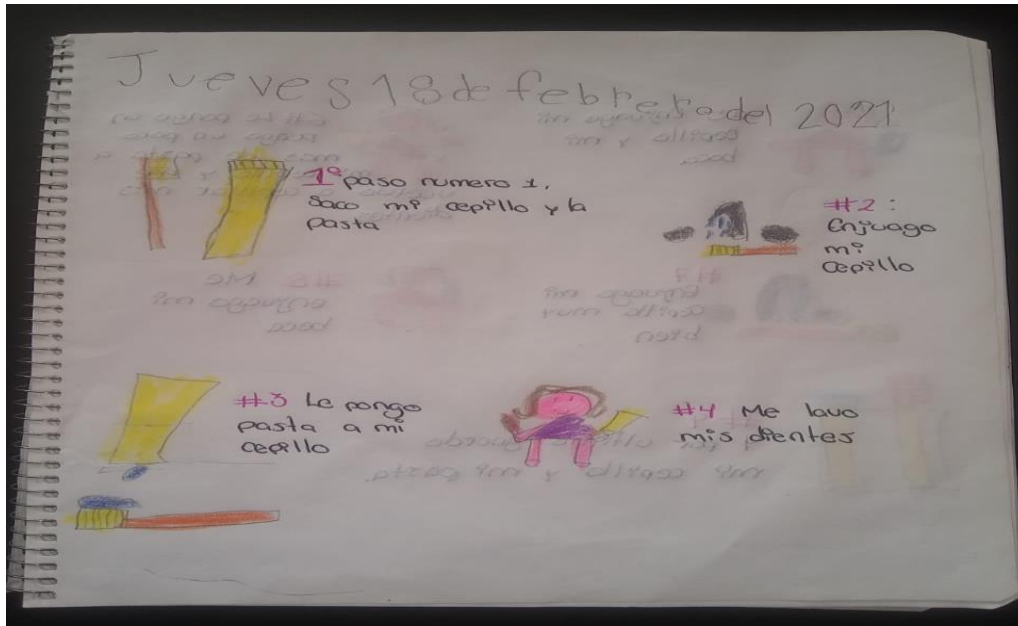 Jueves 18 de febrero del 2021
1º paso numero 1,
Saco mi cepillo y la
pasta
#2:
Enjuago
mi
cepillo
#3 Le pongo
pasta a mi
cepillo
#4 Me lavo
mis dientes